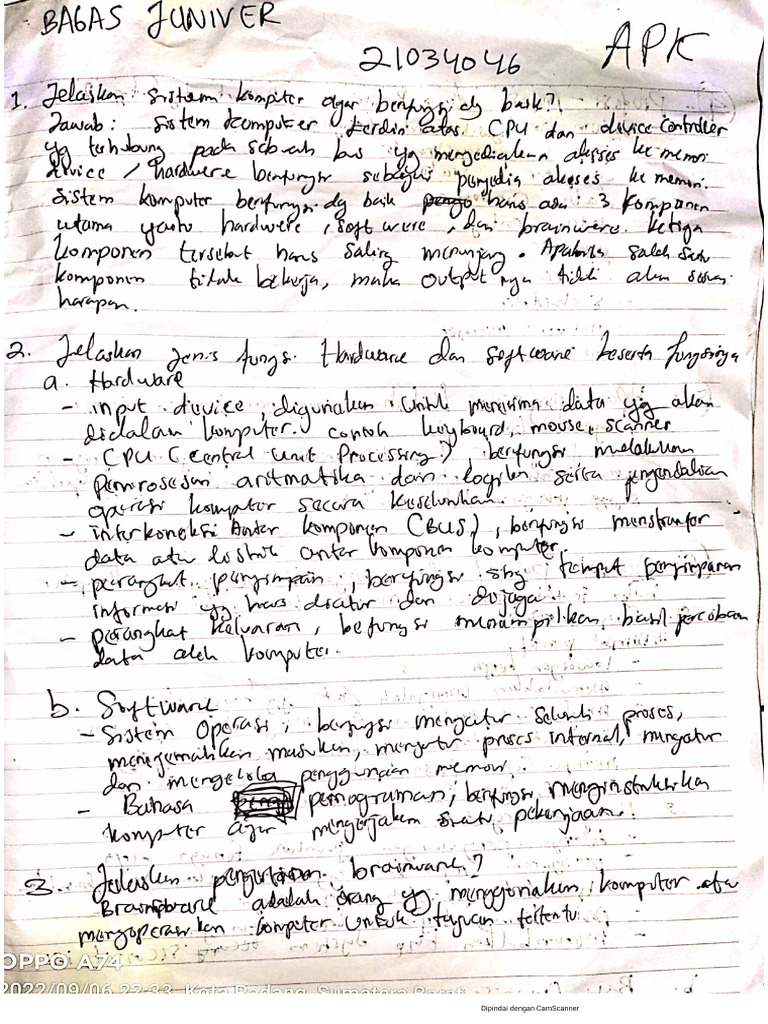 BAGAS JUNIVER
21034046
APK
1. Jelaskan sistem komputer agar berfungsi dg baik?
Jawab : sistem komputer terdiri atas CPU dan device controller
yg terhubung pada sebuah bus yg menyediakan akses ke memori
device / hardwere berfungsi sebagai penyedia akses ke memori.
Sistem komputer berfungsi dg baik harus ada 3 komponen
utama yaitu hardwere, softwere, dan brainwere. ketiga
komponen tersebut harus saling menunjang. Apabila salah satu
komponen tidak bekerja, maka output nya tidak akan sesuai
harapan.
2. Jelaskan jenis fungsi Hardware dan software beserta fungsinya
a. Hardware
- input device, digunakan untuk menerima data yg akan
didalam komputer. contoh keyboard, mouse, scanner
- CPU (Central Unit Processing), berfungsi melakukan
pemrosesan aritmatika dan logika serta pengendalian
operasi komputer secara keseluruhan.
- interkoneksi antar komponen (BUS), berfungsi menstransfer
data atau listrik antar komponen komputer.
- perangkat penyimpan, berfungsi sbg tempat penyimpanan
informasi yg harus diatur dan dijaga.
- perangkat keluaran, berfungsi menampilkan hasil
data oleh komputer.
b. Software
- Sistem Operasi, berfungsi mengatur seluruh proses,
menerjemahkan masukan, mengatur proses internal, mengatur
dan mengelola penggunaan memori.
- Bahasa pemograman, berfungsi menginstruksikan
komputer agar mengerjakan suatu pekerjaan.
3. Jelaskan pengertian brainware?
Brainware adalah orang yg menggunakan komputer atau
mengoperasikan komputer untuk tujuan tertentu.
OPPO A74
2022/09/06 22:33 Kota Padang, Sumatera Barat
Dipindai dengan CamScanner